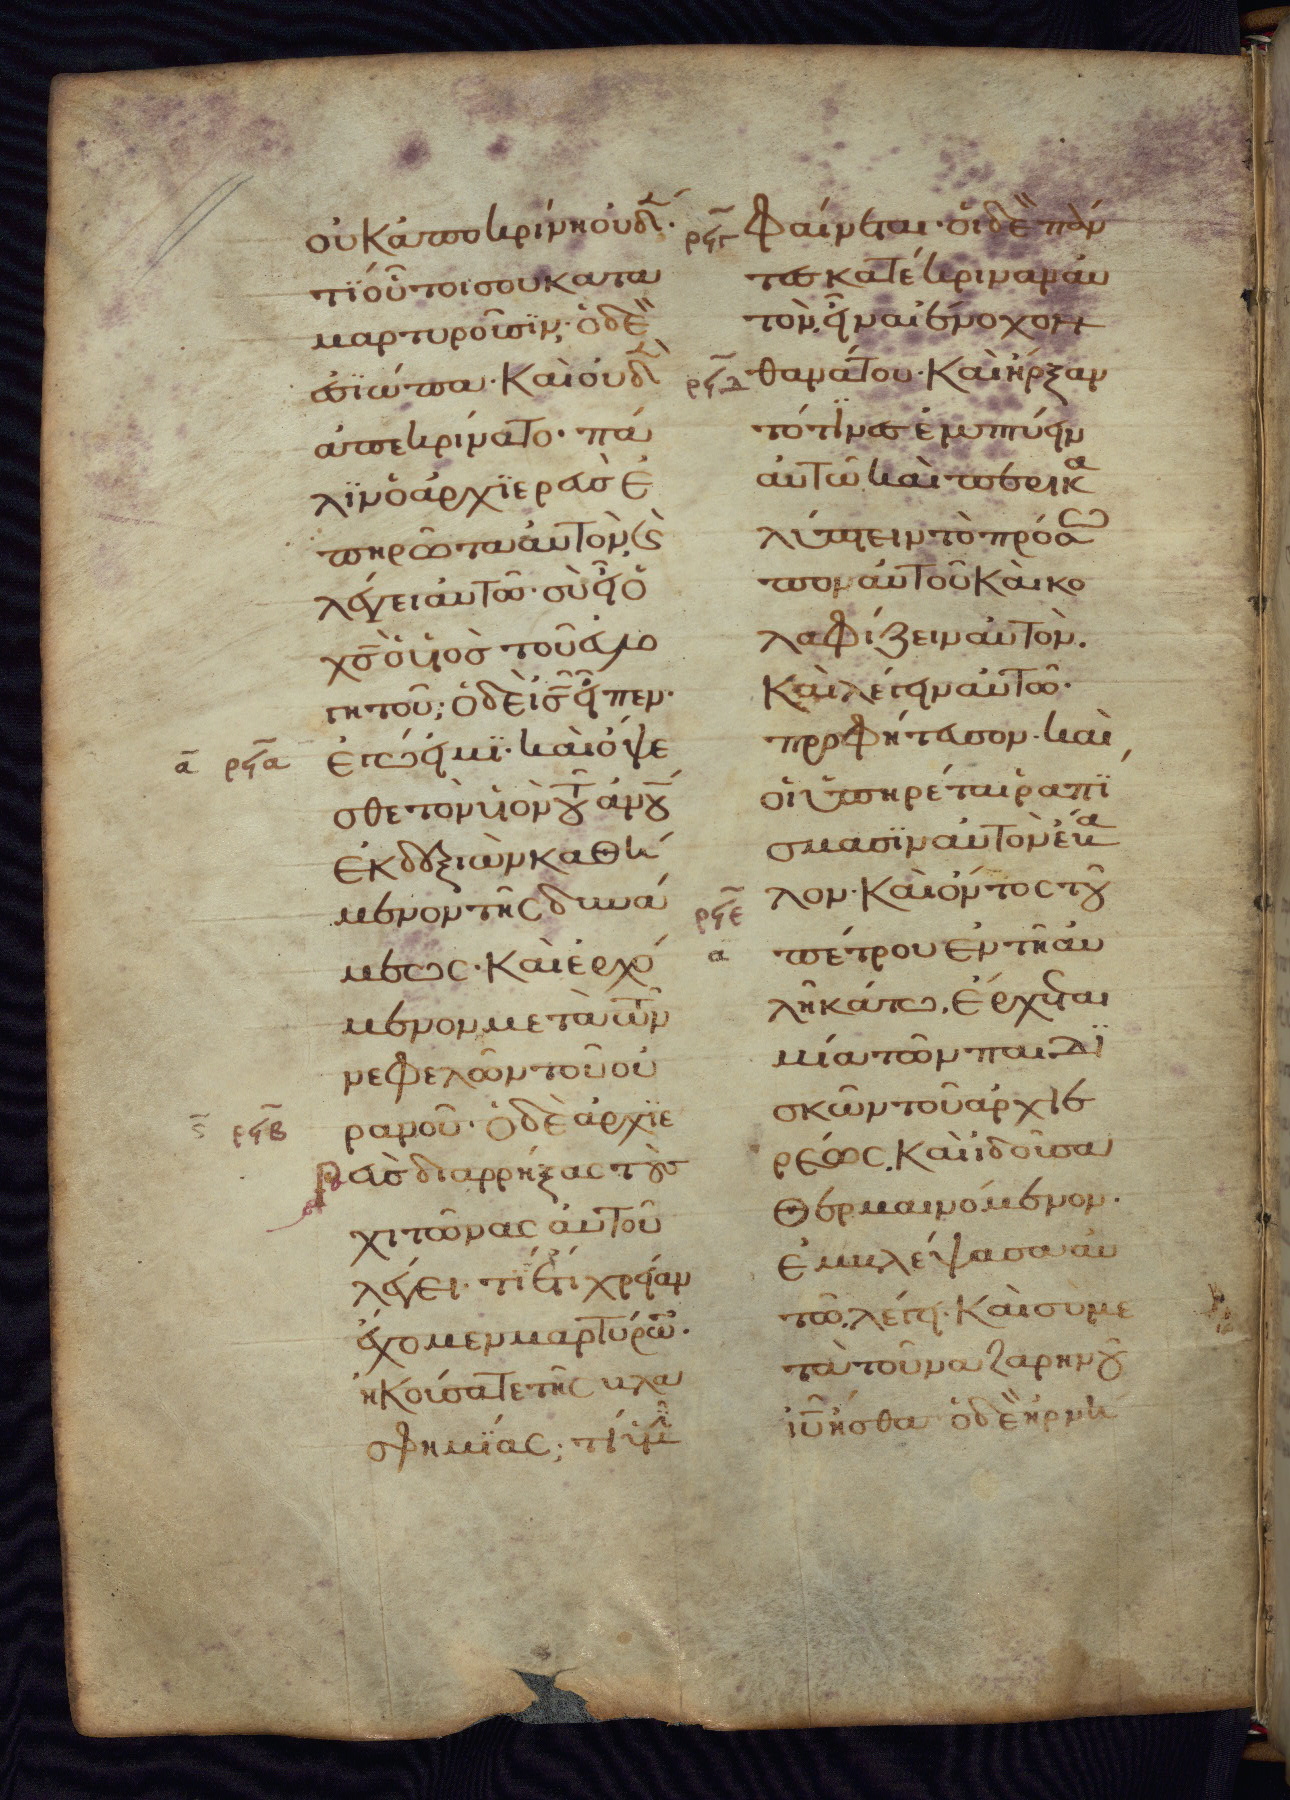 οὐκ ἀποκρίνη οὐδέν·
τΐ οὗτοι σου κατα
μαρτυροῦσϊν; ὁ δὲ
ἐσϊώπα· καὶ οὐδὲν
ἀπεκρίνατο· πά
λϊν ὁ ἀρχϊερεὺσ ἐ
πηρώτα αὐτὸν, ϗ
λέγει αὐτῶ· σὺ εἶ ὁ
χ̅ς̅ ὁ υἱὸσ τοῦ εὐλο
γητοῦ; ὁ δὲ ι̅ς̅ εἶπεν·
α̅ ρϟα̅ ἐγώ εἰμϊ· καὶ ὄψε
σθε τὸν υἱὸν τοῦ ἀν̅ου̅
ἐκ δεξιῶν καθή
μενον τῆς δυνά
μεως· καὶ ἐρχό
μενον μετὰ τῶν
νεφελῶν τοῦ οὐ
ϛ̅ ρϟβ̅ ρανοῦ· ὁ δὲ ἀρχϊε
ρεὺσ διαρρήξας τοὺσ
χιτῶνας αὐτοῦ
λέγει· τί ἔτι χρείαν
ἔχομεν μαρτύρων·
ἠκούσατε τῆς βλα
σφημΐας; τί ὑμῖν
ρϟγ̅ φαίνεται· οἱ δὲ πάν
τεσ κατέκριναν αὐ
τὸν, εἶναι ἔνοχον
ρϟδ̅ θανάτου· καὶ ἤρξαν
τό τϊνεσ ἐμπτύειν
αὐτῶ καὶ περικα
λύπτειν τὸ πρόσω
πον αὐτοῦ καὶ κο
λαφίζειν αὐτὸν.
καὶ λέγειν αὐτῶ·
προφήτευσον· καὶ
οἱ ὑπηρέται ῥαπΐ
σμασϊν αὐτὸν ἔβα
ρϟε̅ λον· καὶ ὄντος τοῦ
α πέτρου ἐν τῆ αὐ
λῆ κάτω, ἔρχεται
μία τῶν παιδϊ
σκῶν τοῦ ἀρχιε
ρέως, καὶ ἰδοῦσα
θερμαινόμενον·
ἐμβλέψασα αὐ
τῶ, λέγει· καὶ σὺ με
τὰ τοῦ ναζαρηνοῦ
ι̅υ̅ ἦσθα· ὁ δὲ ἠρνή